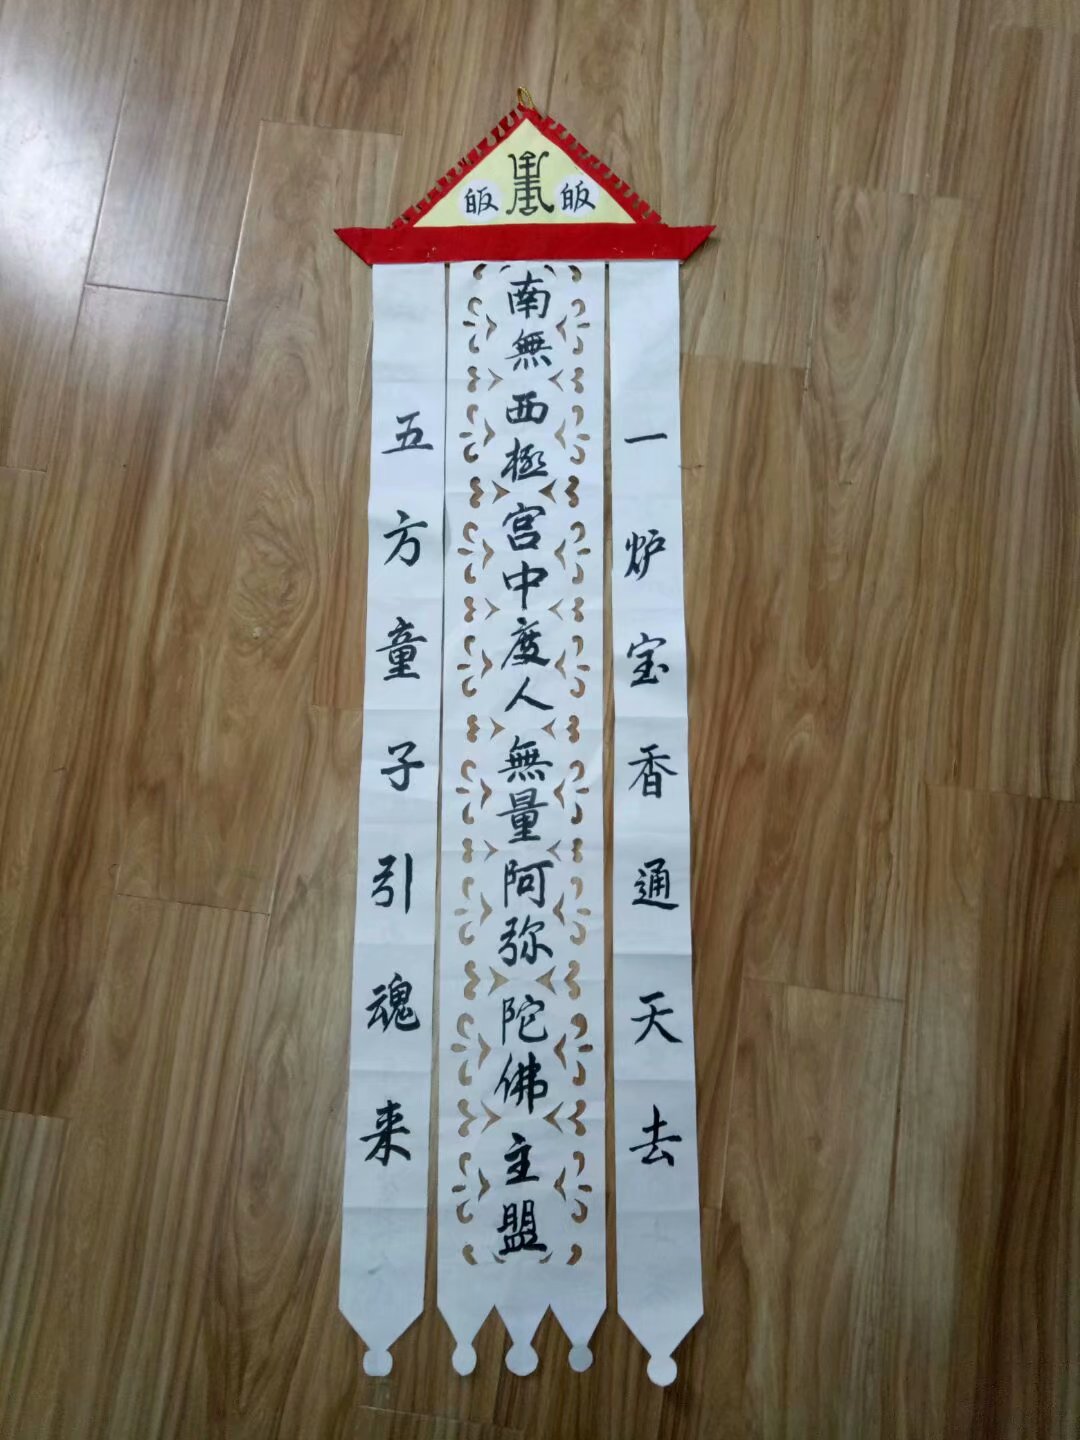 皈 皈
一炉宝香通天去
南無西極宫中度人無量阿弥陀佛主盟
五方童子引魂来